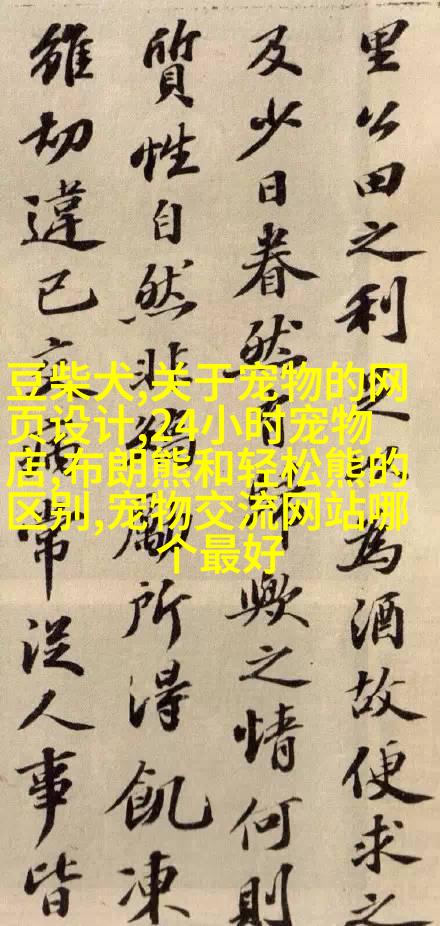 里公田之利足以為酒故便求之
及少日眷然有歸歟之情何則
質性自然非矯厲所得飢凍
雖切違己交常從人事皆
豆柴犬,关于宠物的网
页设计,24小时宠物
店,布朗熊和轻松熊的
区别,宠物交流网站哪
个最好